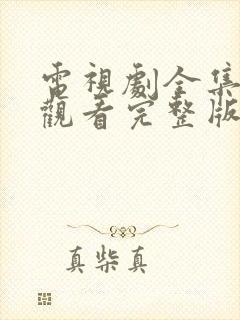 電視劇全集
觀看完整版
真柴真